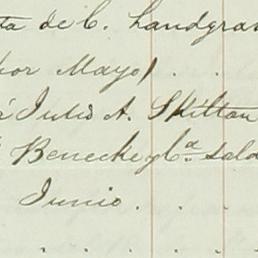 ta de C. Landgra
por Mayo) . .
a Julio A. Skilton
Benecke y Ca. sald
Junio . . .
. . . . .